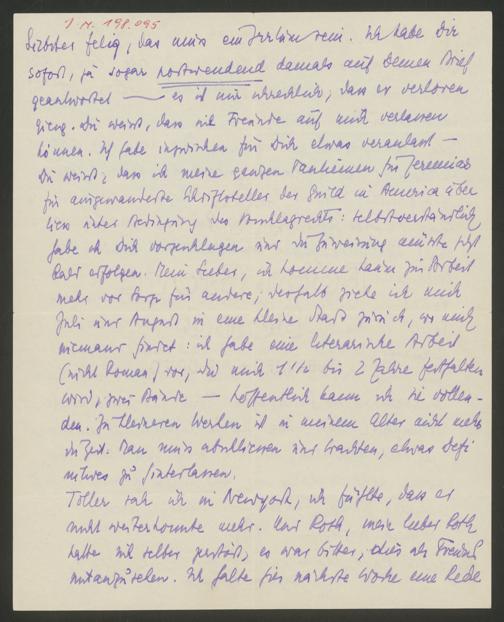 I. N. 198.095
Liebster Felix, das muss ein Irrtum sein. Ich habe Dir
sofort, ja sogar postwendend damals auf Deinen Brief
geantwortet — es ist mir schrecklich, dass er verloren
gieng. Du weisst, dass sich Freunde auf mich verlassen
können. Ich habe inzwischen für Dich etwas veranlasst —
Du weisst, dass ich meine ganzen Tantiemen für Jeremias
für ausgewanderte Schriftsteller der Guild in America über
liess unter Bedingung des Vorschlagrechts: selbstverständlich
habe ich Dich vorgeschlagen und die Zuweisung müsste jetzt
bald erfolgen. Mein Lieber, ich komme kaum zur Arbeit
mehr vor Sorge für andere; deshalb ziehe ich mich
Juli und August in eine kleine Stadt zurück, wo mich
niemand findet: ich habe eine literarische Arbeit
(nicht Roman) vor, die mich 1 1/2 bis 2 Jahre festhalten
wird, zwei Bände — hoffentlich kann ich sie vollen-
den. Zu kleineren Werken ist in meinem Alter nicht mehr
die Zeit. Man muss abschliessen und trachten, etwas Defi
nitives zu hinterlassen.
Toller sah ich in Newyork, ich fühlte, dass er
nicht weiterkonnte mehr. Und Roth, mein lieber Roth
hatte sich selber zerstört, es war bitter, dies als Freund
mitanzusehen. Ich halte hier nächste Woche eine Rede